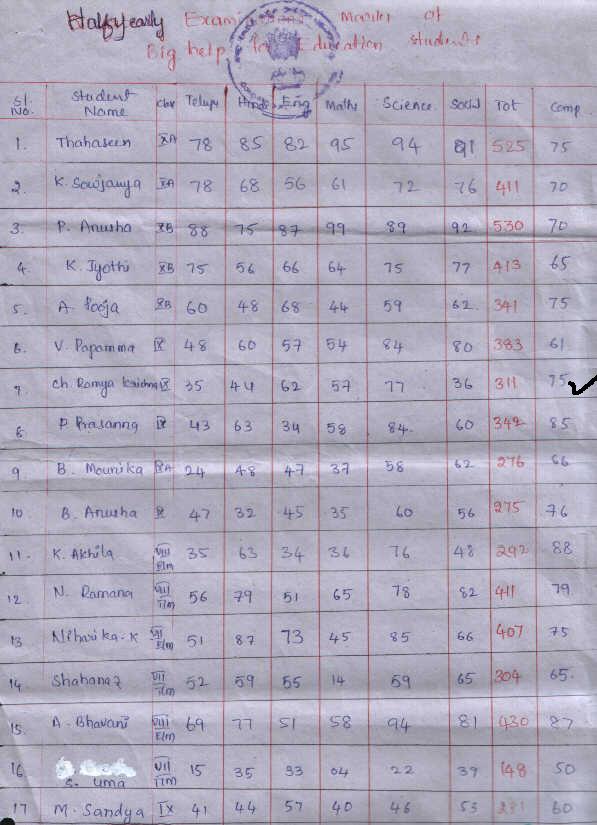 Halfyearly Examinations Marks of
Big help for Education students
Sl. No. Student Name Class Telugu Hindi Eng Maths Science Social Tot Comp
1. Thahaseen XA 78 85 82 95 94 91 525 75
2. K. Sowjanya XA 78 68 56 61 72 76 411 70
3. P. Anusha XB 88 75 87 99 89 92 530 70
4. K. Jyothi XB 75 56 66 64 75 77 413 65
5. A. Pooja XB 60 48 68 44 59 62. 341 75
6. V. Papamma IX 48 60 57 54 84 80 383 61
7. Ch. Ramya Krishna IX 35 44 62 57 77 36 311 75
8 P Prasanna IX 43 63 34 58 84. 60 342 85
9 B. Mounika IXA 24 48 47 37 58 62 276 66
10. B. Anusha IX 47 32 45 35 60 56 275 76
11. K. Akhila VIII E/m 35 63 34 36 76 48 292 88
12. N. Ramana VIII T/m 56 79 51 65 78 82 411 79
13 Niharika. K VII E/m 51 87 73 45 85 66 407 75
14 Shahanaz VII T/m 52 59 55 14 59 65 304 65.
15. A. Bhavani VIII E/m 69 77 51 58 94 81 430 87
16 S. Uma VII T/m 15 35 33 04 22 39 148 50
17 M. Sandya IX 41 44 57 40 46 53 281 60